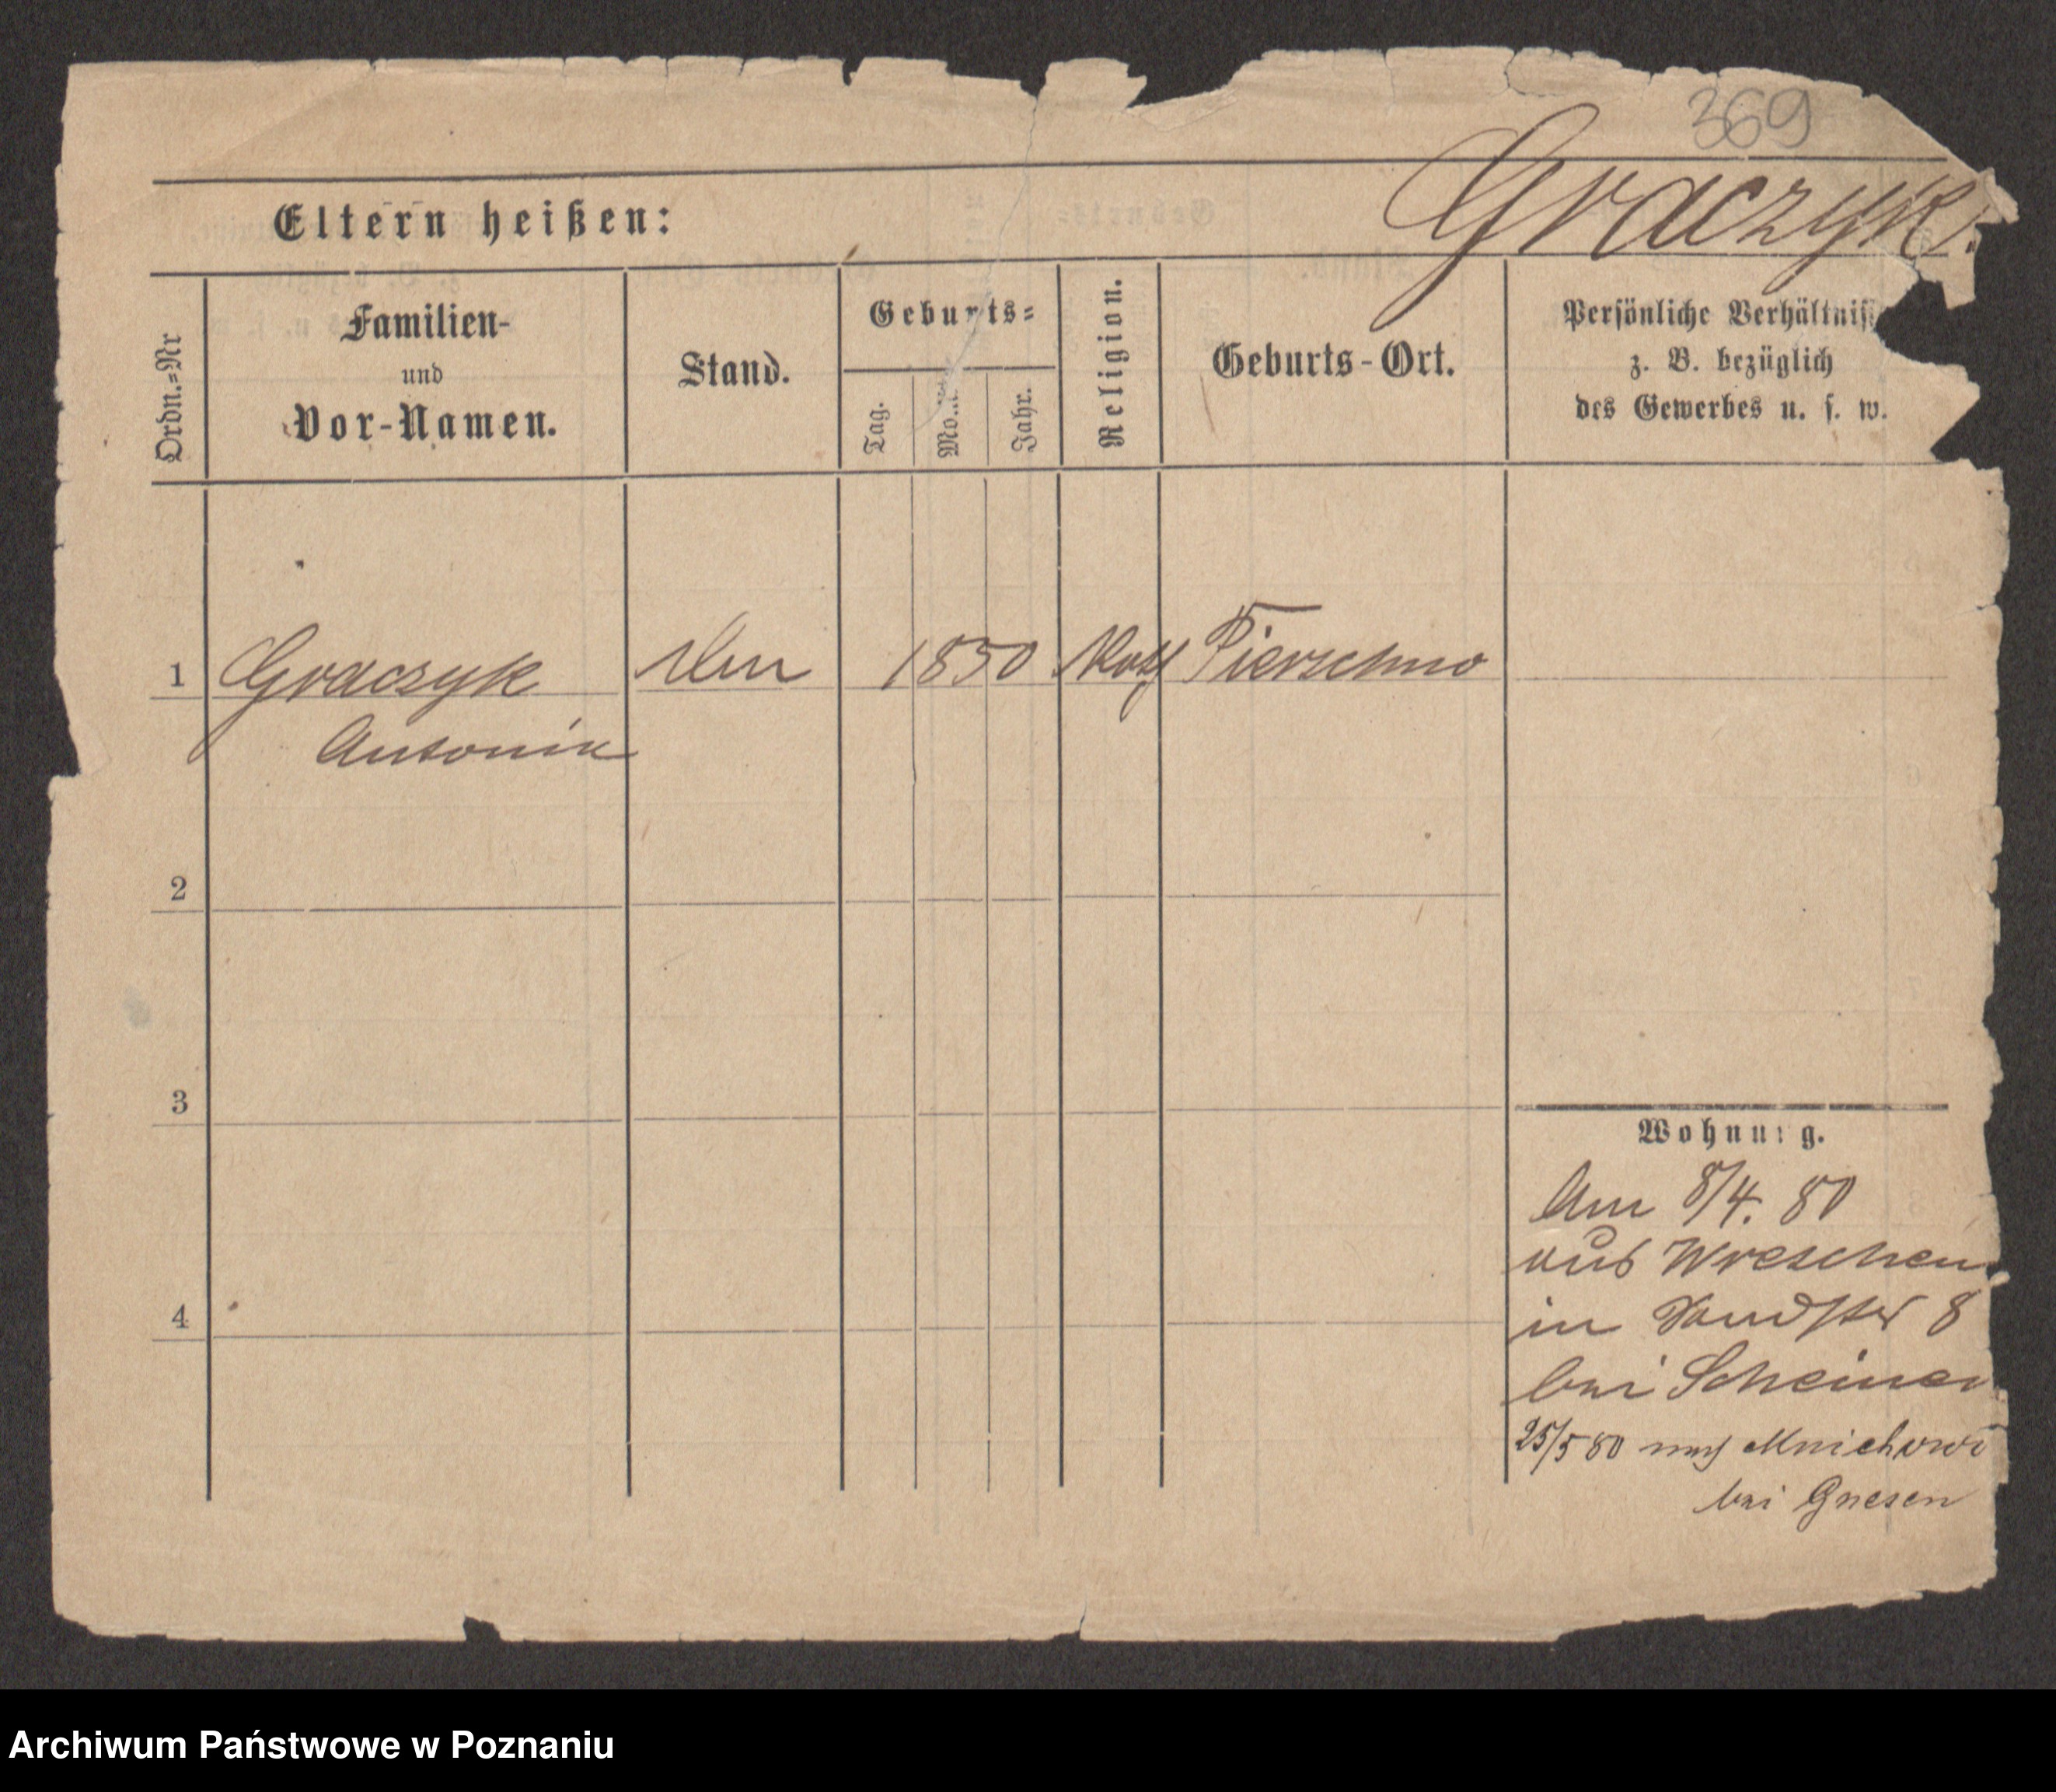 369
Graczyk
Eltern heißen:
Ordn.=Nr
Familien-
und
Vor-Namen.
Stand.
Geburts=
Tag.
Jahr.
Religion.
Geburts-Ort.
Persönliche Verhältniss
z. B. bezüglich
des Gewerbes u. s. w.
1 Graczyk 1850 Pierschno
Antonie
2
3
4
Wohnung.
Am 8/4. 80
aus Wreschen
in 8
bei Scheiner
25/5 80 nach Mnichowo
bei Gnesen
Archiwum Państwowe w Poznaniu